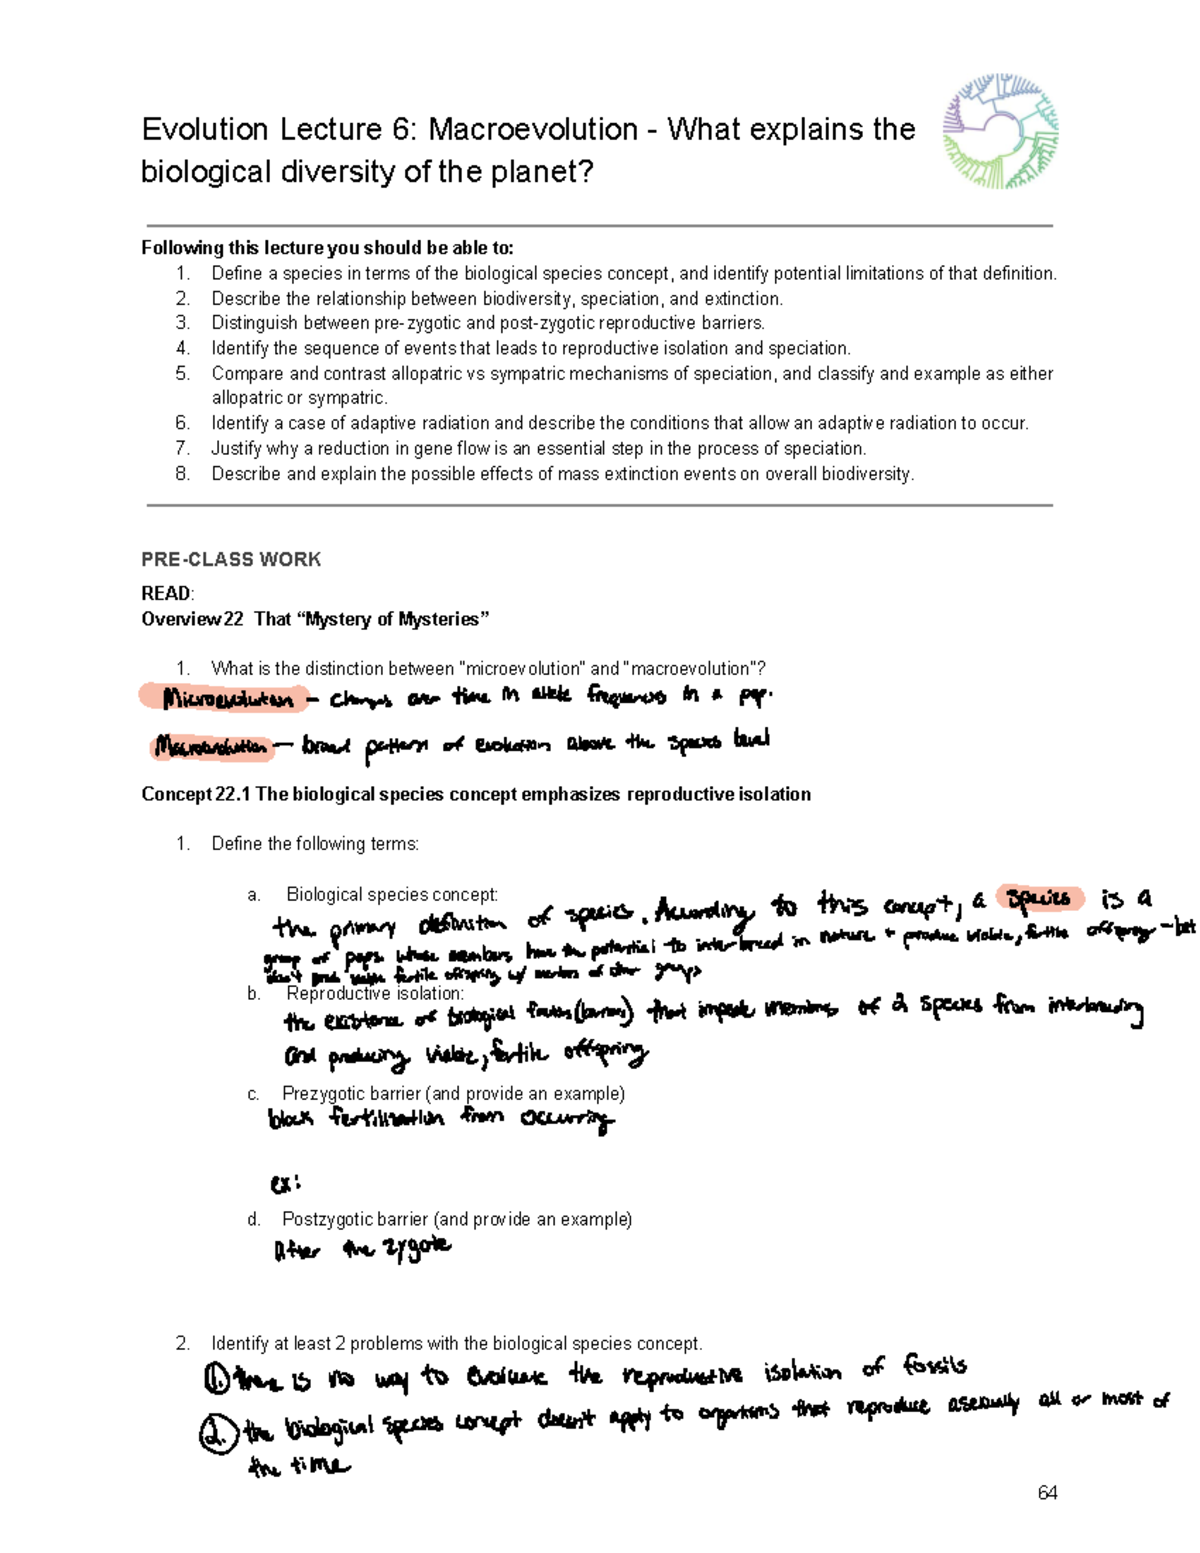 Evolution Lecture 6: Macroevolution - What explains the
biological diversity of the planet?
Following this lecture you should be able to:
1. Define a species in terms of the biological species concept, and identify potential limitations of that definition.
2. Describe the relationship between biodiversity, speciation, and extinction.
3. Distinguish between pre-zygotic and post-zygotic reproductive barriers.
4. Identify the sequence of events that leads to reproductive isolation and speciation.
5. Compare and contrast allopatric vs sympatric mechanisms of speciation, and classify and example as either
allopatric or sympatric.
6. Identify a case of adaptive radiation and describe the conditions that allow an adaptive radiation to occur.
7. Justify why a reduction in gene flow is an essential step in the process of speciation.
8. Describe and explain the possible effects of mass extinction events on overall biodiversity.
PRE-CLASS WORK
READ:
Overview 22 That “Mystery of Mysteries”
1. What is the distinction between "microevolution" and "macroevolution"?
Microevolution - changes over time in allele frequencies in a pop.
Macroevolution - broad pattern of evolution above the species level
Concept 22.1 The biological species concept emphasizes reproductive isolation
1. Define the following terms:
a. Biological species concept:
the primary definition of species. According to this concept, a species is a
group of pops whose members have the potential to interbreed in nature + produce viable, fertile offspring - but
don't prod viable fertile offspring w/ members of other groups
b. Reproductive isolation:
the existence of biological factors (barriers) that impede members of 2 species from interbreeding
and producing viable, fertile offspring
c. Prezygotic barrier (and provide an example)
block fertilization from occurring
ex:
d. Postzygotic barrier (and provide an example)
After the zygote
2. Identify at least 2 problems with the biological species concept.
1. there is no way to evaluate the reproductive isolation of fossils
2. the biological species concept doesn't apply to organisms that reproduce asexually all or most of
the time
64